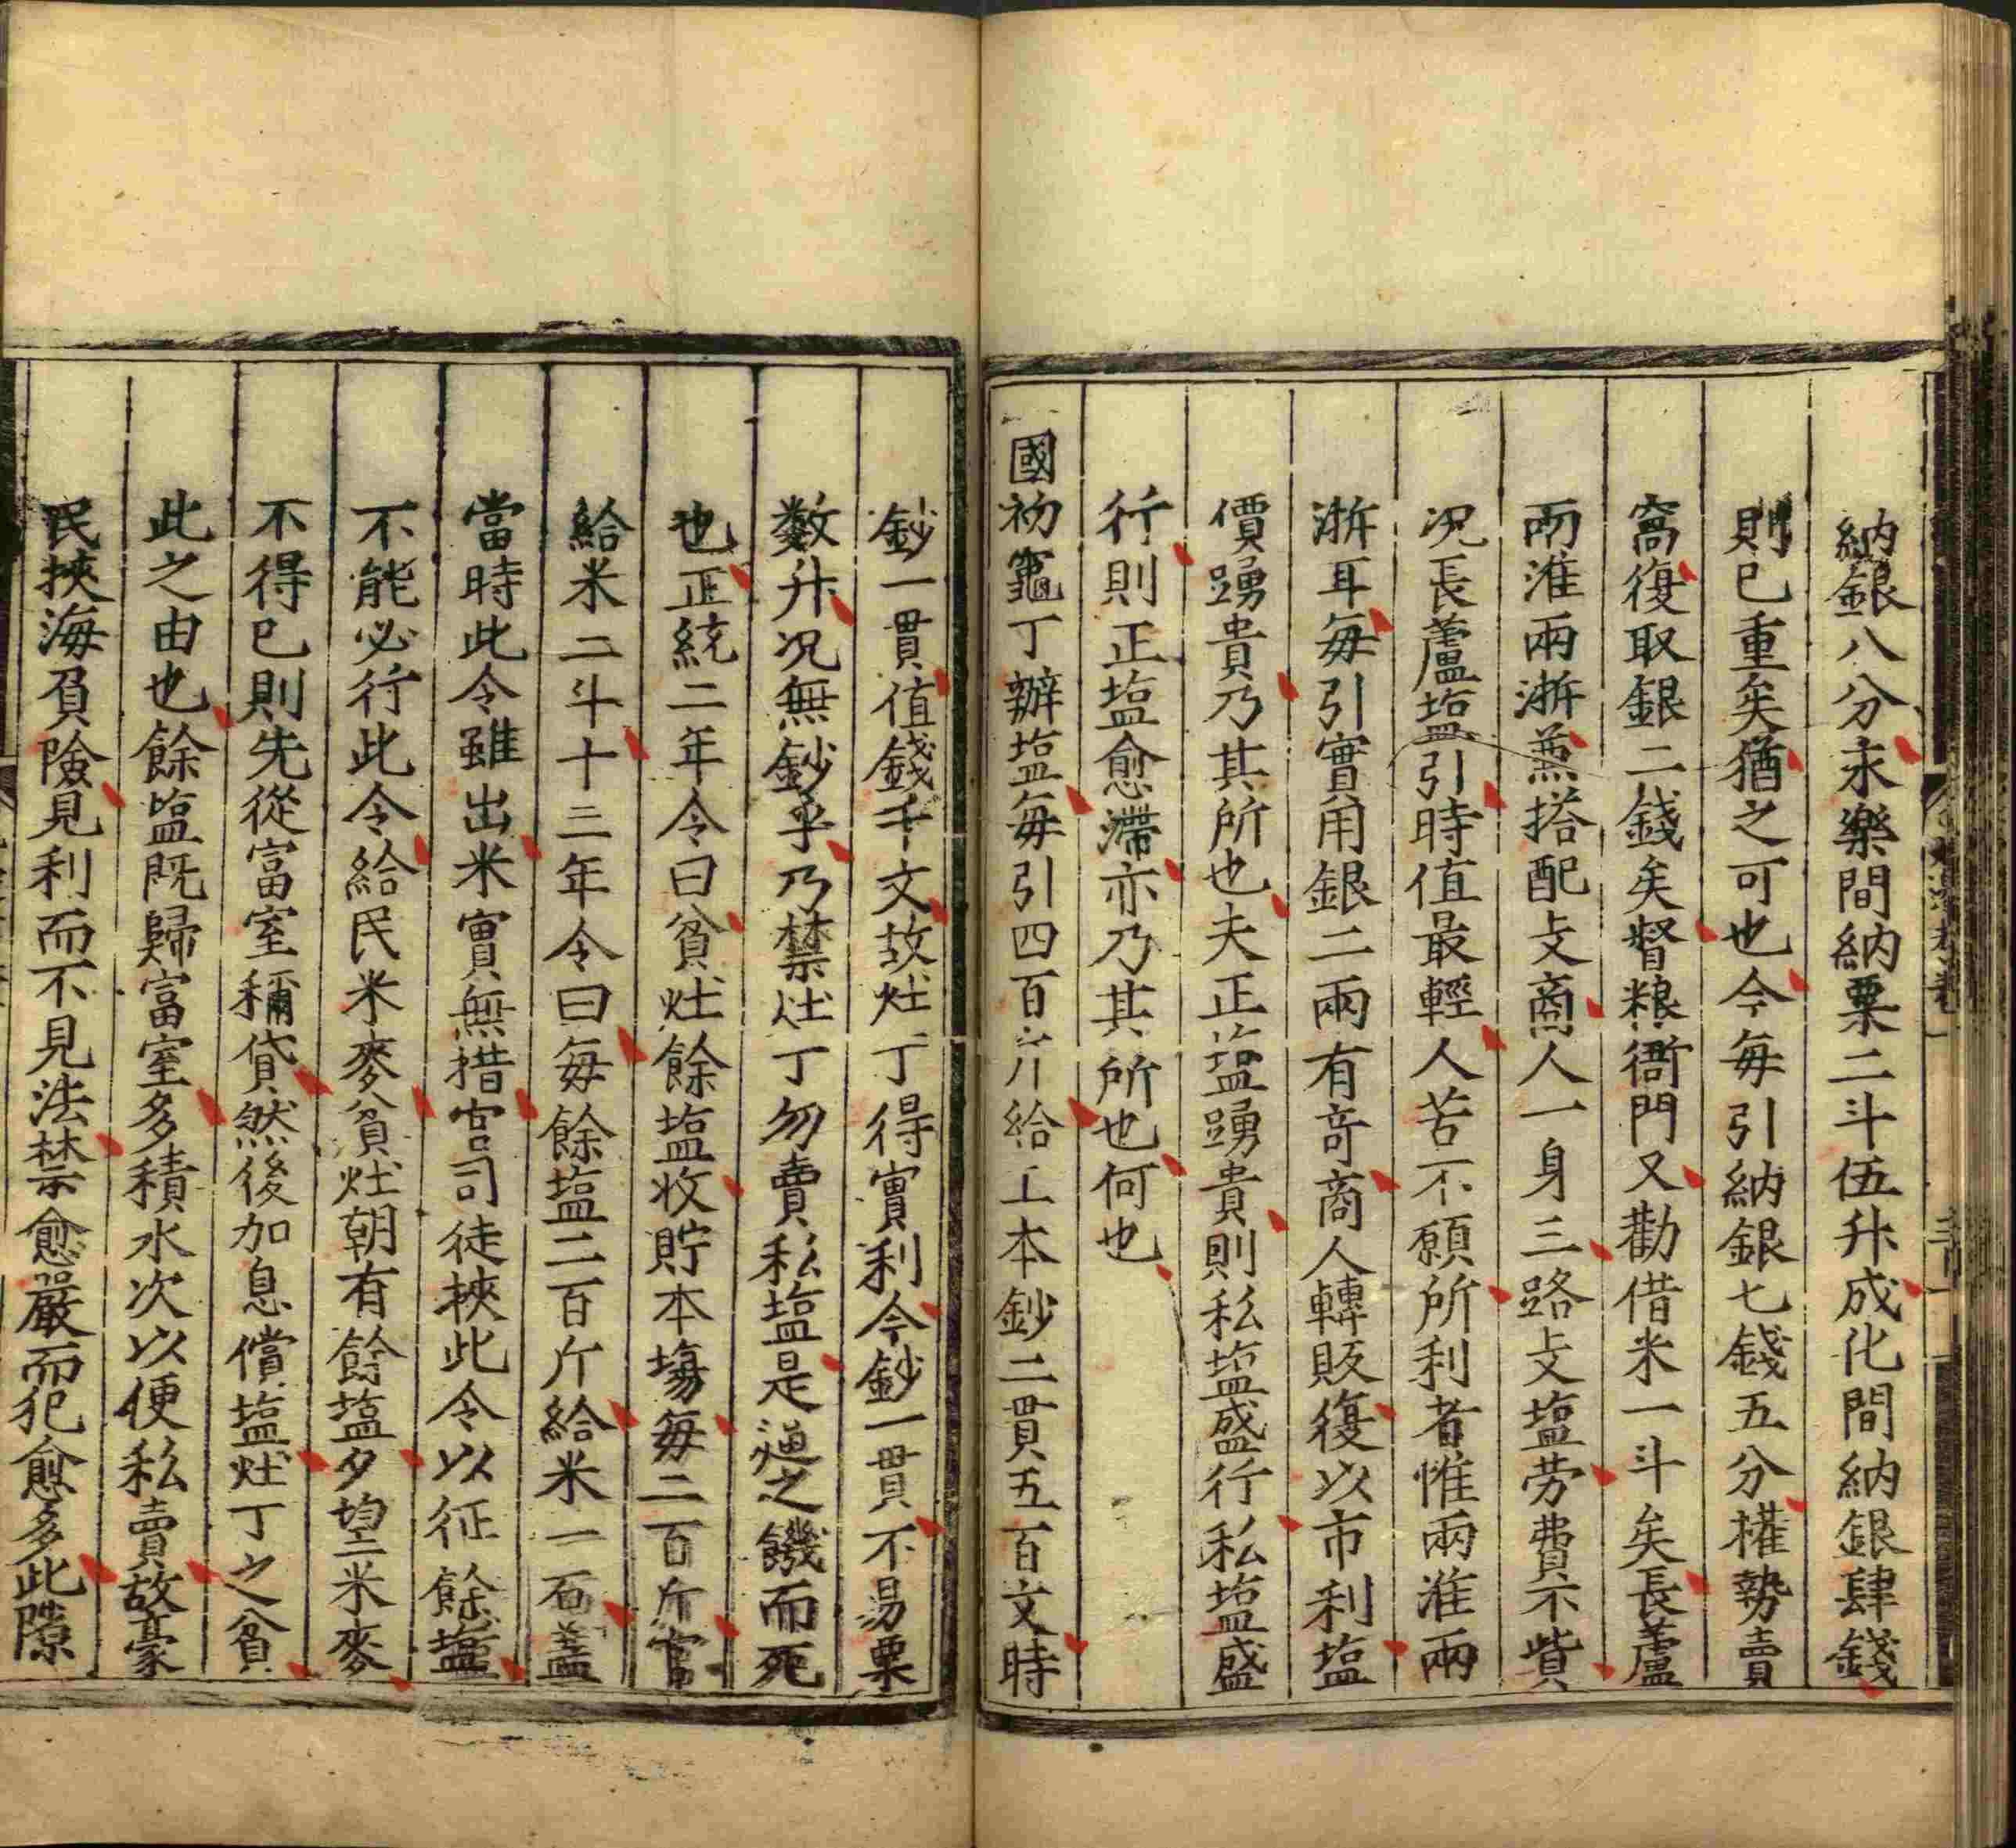 納銀八分永樂間納粟二斗伍升成化間納銀肆錢
則已重矣猶之可也今每引納銀七錢五分權勢賣
窩復取銀二錢矣督粮衙門又勸借米一斗矣長蘆
兩淮兩浙兼搭配支商人一身三路支塩劳費不貲
况長蘆塩引時值最輕人苦不願所利者惟兩淮兩
浙耳每引實用銀二兩有奇商人轉販復以市利塩
價踴貴乃其所也夫正塩踴貴則私塩盛行私塩盛
行則正塩愈滯亦乃其所也何也
國初竈丁辦塩每引四百斤給工本鈔二貫五百文時
鈔一貫值錢千文故灶丁得實利今鈔一貫不易粟
数升况無鈔乎乃禁灶丁勿賣私塩是逼之饑而死
也正統二年令曰貧灶餘塩收貯本塲每二百斤官
給米二斗十三年令曰每餘塩二百斤給米一石盖
當時此令雖出米實無措官司徒挾此令以征餘塩
不能必行此令給民米麥貧灶朝有餘塩夕望米麥
不得已則先從富室稱貸然後加息償塩灶丁之貧
此之由也餘塩既歸富室多積水次以便私賣故豪
民挾海負險見利而不見法禁愈嚴而犯愈多此隙